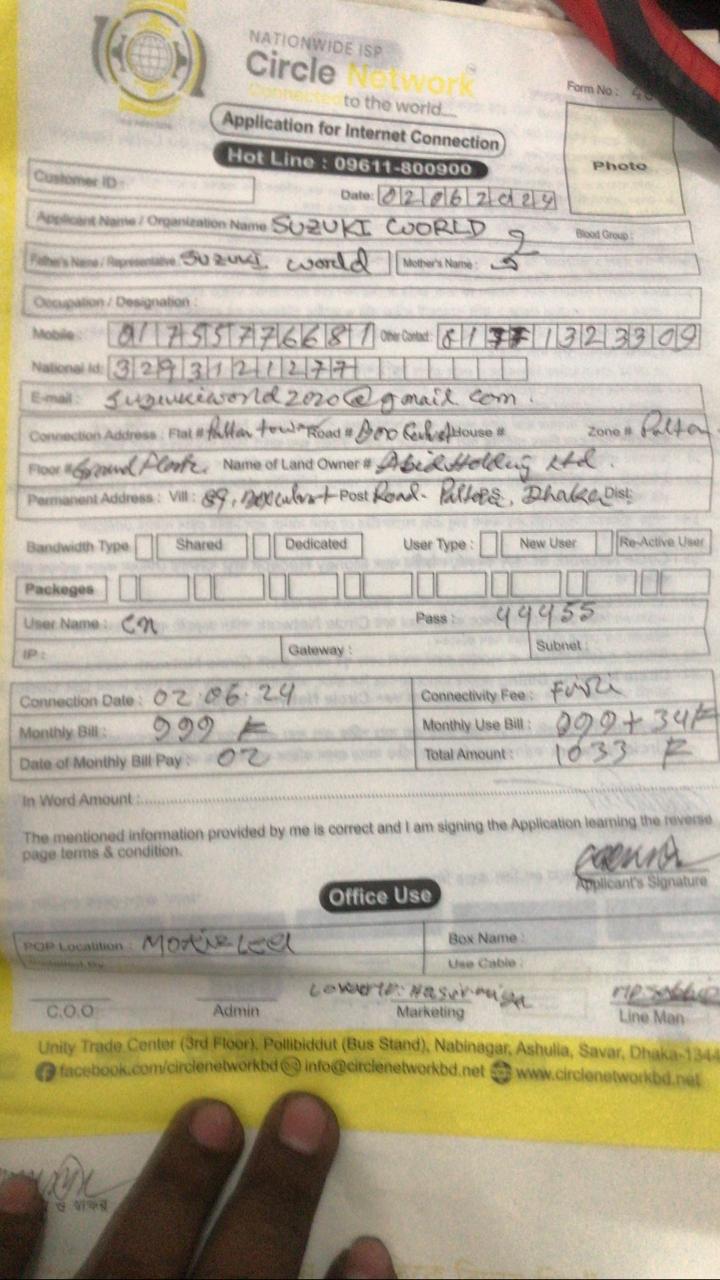 NATIONWIDE ISP
Circle Network
Connected to the world....
Form No :
Application for Internet Connection
Hot Line : 09611-800900
Photo
Customer ID :
Date: 02062024
Applicant Name / Organization Name SUZUKI WORLD
Blood Group :
Father's Name / Representative Suzuki world Mother's Name :
Occupation / Designation :
Mobile : 01755776681 Other Contact :
National Id: 3293121277
E-mail : suzukiworld2020@gmail com.
Connection Address : Flat # Paltan tower Road # House # Zone # Paltan
Floor # Ground Floor. Name of Land Owner # Abid Holding Ltd.
Permanent Address : Vill : 89, Post Road- Dhaka Dist:
Bandwidth Type Shared Dedicated User Type : New User Re-Active User
Packeges
User Name : cn Pass : 44455
IP : Gateway : Subnet :
Connection Date : 02.06.24 Connectivity Fee :
Monthly Bill : 999 Monthly Use Bill : 999+34
Date of Monthly Bill Pay : 02 Total Amount : 1033
In Word Amount :
The mentioned information provided by me is correct and I am signing the Application learning the reverse
page terms & condition.
Applicant's Signature
Office Use
POP Locatition : Box Name :
Use Cable :
C.O.O Admin Marketing Line Man
Unity Trade Center (3rd Floor), Pollibiddut (Bus Stand), Nabinagar, Ashulia, Savar, Dhaka-1344
facebook.com/circlenetworkbd info@circlenetworkbd.net www.circlenetworkbd.net